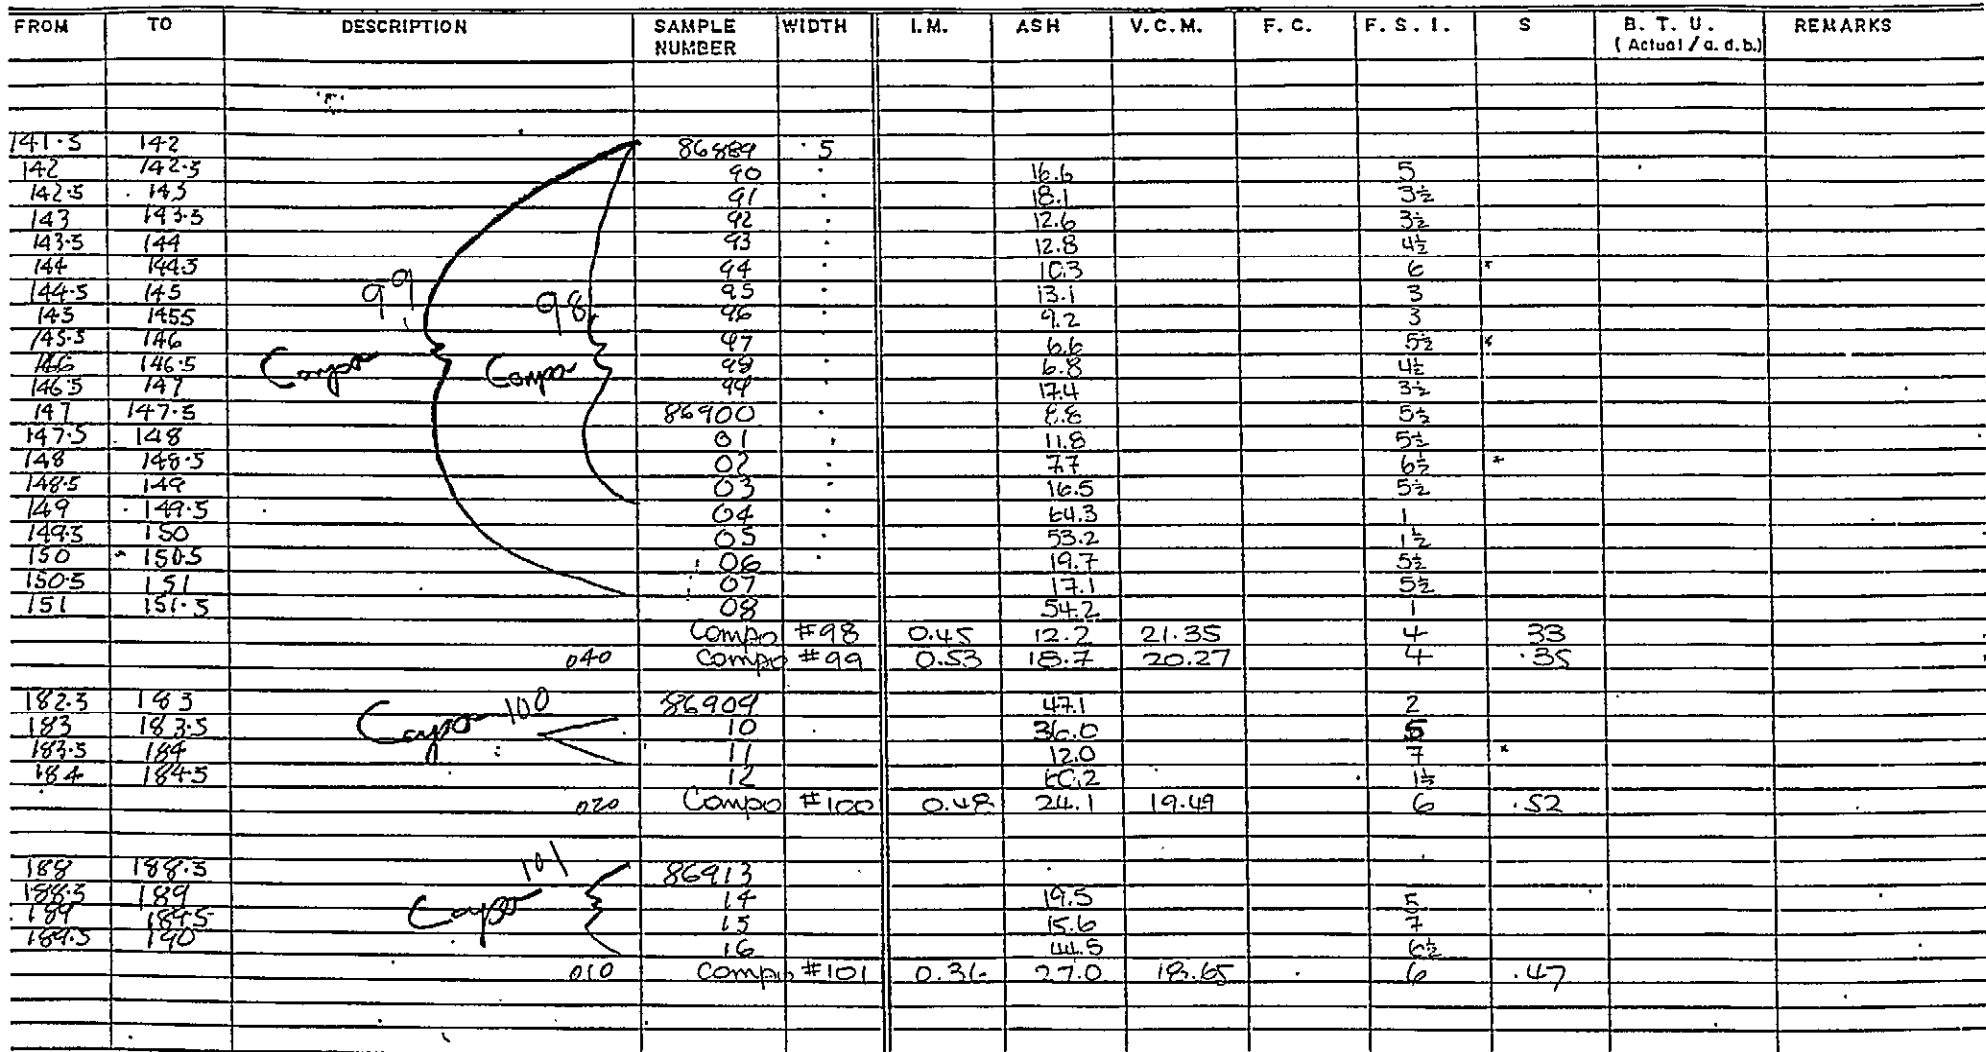 FROM TO DESCRIPTION SAMPLE NUMBER WIDTH I.M. ASH V.C.M. F.C. F.S.I. S B.T.U. (Actual / a.d.b.) REMARKS
141.5 142 86889 .5
142 142.5 90 16.6 5
142.5 143 91 18.1 3½
143 143.5 92 12.6 3½
143.5 144 93 12.8 4½
144 144.5 94 10.3 6 *
144.5 145 99 98 95 13.1 3
145 1455 96 9.2 3
145.5 146 97 6.6 5½ *
146 146.5 Compo Compo 98 6.8 4½
146.5 147 99 17.4 3½
147 147.5 86900 8.8 5½
147.5 148 01 11.8 5½
148 148.5 02 7.7 6½ *
148.5 149 03 16.5 5½
149 149.5 04 64.3 1
149.5 150 05 53.2 1½
150 150.5 06 19.7 5½
150.5 151 07 17.1 5½
151 151.5 08 54.2 1
Compo #98 0.45 12.2 21.35 4 33
040 Compo #99 0.53 18.7 20.27 4 .35
182.5 183 Compo 100 86909 47.1 2
183 183.5 10 36.0 5
183.5 184 11 12.0 7 *
184 184.5 12 60.2 1½
020 Compo #100 0.48 24.1 19.49 6 .52
188 188.5 Compo 101 86913
188.5 189 14 19.5 5
189 189.5 15 15.6 7
189.5 190 16 44.5 6½
010 Compo #101 0.36 27.0 18.65 6 .47